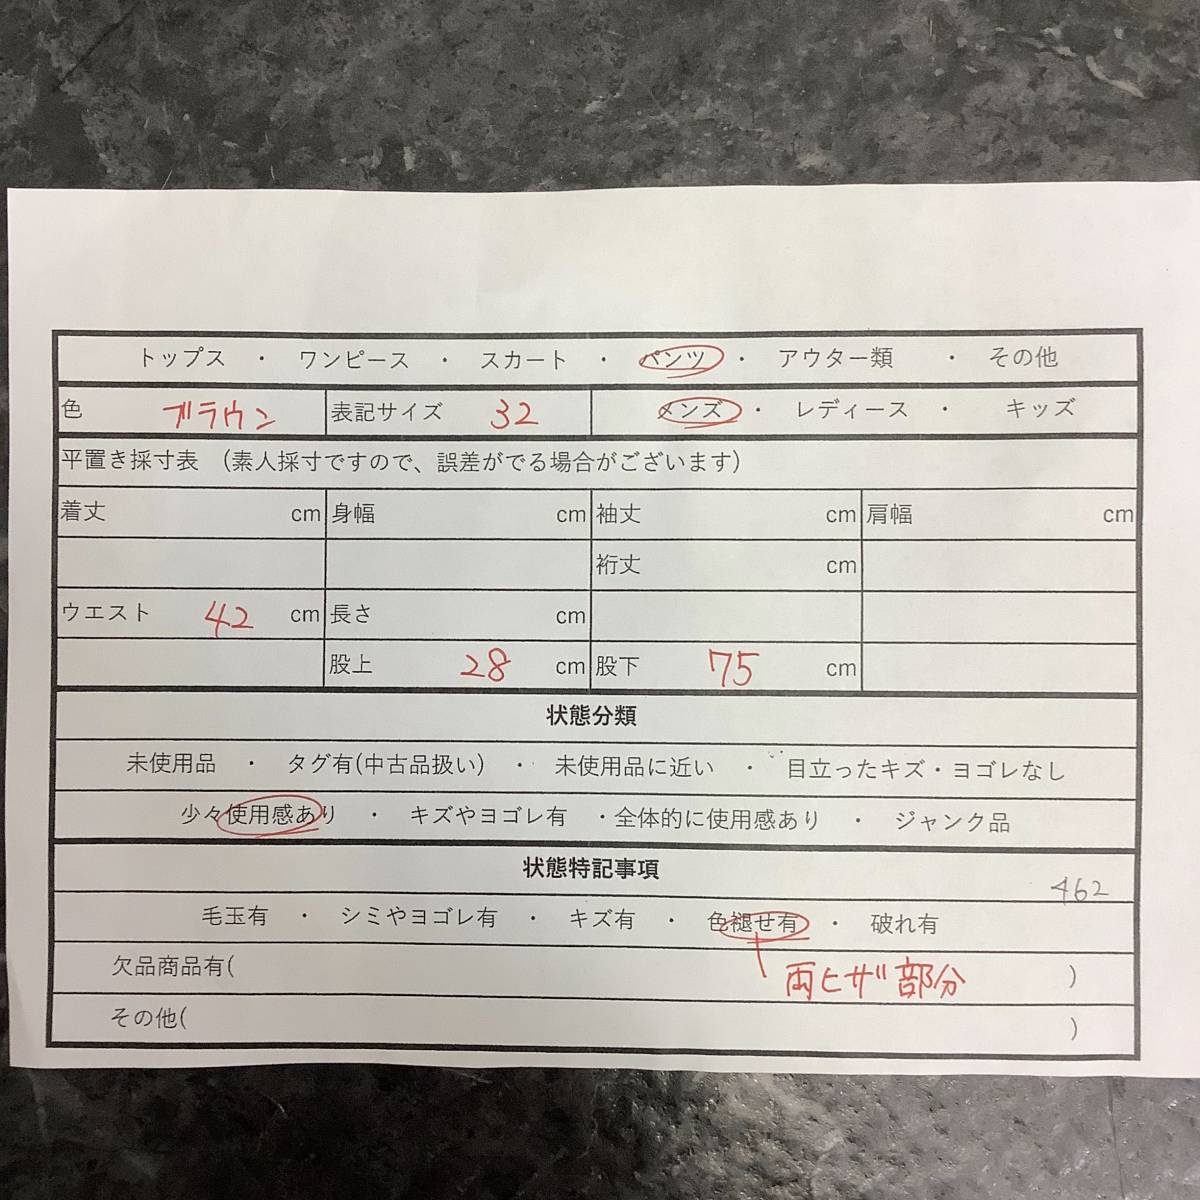 トップス ・ ワンピース ・ スカート ・ パンツ ・ アウター類 ・ その他
色 ブラウン 表記サイズ 32 メンズ ・ レディース ・ キッズ
平置き採寸表 （素人採寸ですので、誤差がでる場合がございます）
着丈 cm 身幅 cm 袖丈 cm 肩幅 cm
裄丈 cm
ウエスト 42 cm 長さ cm
股上 28 cm 股下 75 cm
状態分類
未使用品 ・ タグ有(中古品扱い) ・ 未使用品に近い ・ 目立ったキズ・ヨゴレなし
少々使用感あり ・ キズやヨゴレ有 ・全体的に使用感あり ・ ジャンク品
状態特記事項
462
毛玉有 ・ シミやヨゴレ有 ・ キズ有 ・ 色褪せ有 ・ 破れ有
欠品商品有( )
両ヒザ部分
その他( )